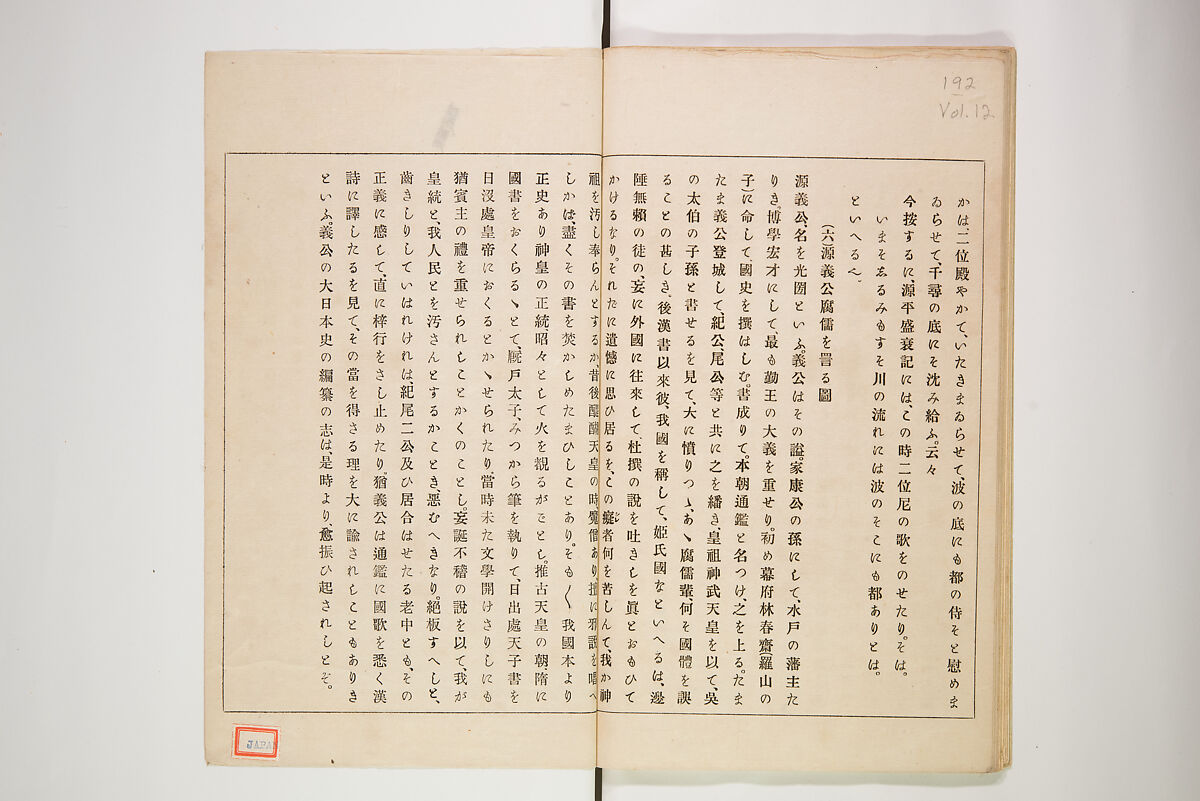 192
Vol.12
かは、二位殿やかて、いたきまゐらせて、波の底にも都の侍そと慰めま
ゐらせて、千尋の底にそ沈み給ふ。云々
今按するに、源平盛衰記には、この時二位尼の歌をのせたり。そは。
いまそゑるみもすそ川の流れには波のそこにも都ありとは。
といへる〻
(六)源義公腐儒を詈る圖
源義公、名を光圀といふ。義公はその諡。家康公の孫にして、水戸の藩主た
りき。博學宏才にして、最も勤王の大義を重せり。初め幕府林春齋(羅山の
子)に命して、國史を撰はしむ。書成りて。本朝通鑑と名つけ、之を上る。たま
たま義公登城して、紀公、尾公等と共に之を繙き、皇祖神武天皇を以て、吳
の太伯の子孫と書せるを見て、大に憤りつゝ、あゝ腐儒輩、何そ國體を誤
ることの甚しき、後漢書以來彼、我國を稱して、姫氏國なといへるは、邊
陲無賴の徒の、妄に外國に往來して、杜撰の說を吐きしを眞とおもひて
かけるなり。それたに遺憾に思ひ居るを、この癡者何を苦しんて、我か神
祖を汚し奉らんとするか、昔後醍醐天皇の時魔僧あり、擅に邪說を唱へ
しかは、盡くその書を焚かしめたまひしことあり。そも〱我國本より
正史あり神皇の正統昭々として火を觀るがごとし。推古天皇の朝、隋に
國書をおくらるゝとて、厩戸太子、みつから筆を執りて、日出處天子書を
日沒處皇帝におくるとかゝせられたり。當時未た文學開けさりしにも
猶賓主の禮を重せられしことかくのことし。妄誕不稽の說を以て、我が
皇統と、我人民とを汚さんとするかことき悪むへきなり。絕板すへしと、
齒きしりしていはれけれは、紀尾二公及ひ居合はせたる老中とも、その
正義に感して、直に梓行をさし止めたり。猶義公は通鑑に國歌を悉く漢
詩に譯したるを見て、その當を得さる理を大に諭されしこともありき
といふ。義公の大日本史の編纂の志は、是時より、愈振ひ起されしとぞ。
JAPAN